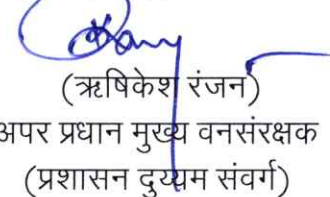 (ऋषिकेश रंजन)
अपर प्रधान मुख्य वनसंरक्षक
(प्रशासन दुय्यम संवर्ग)